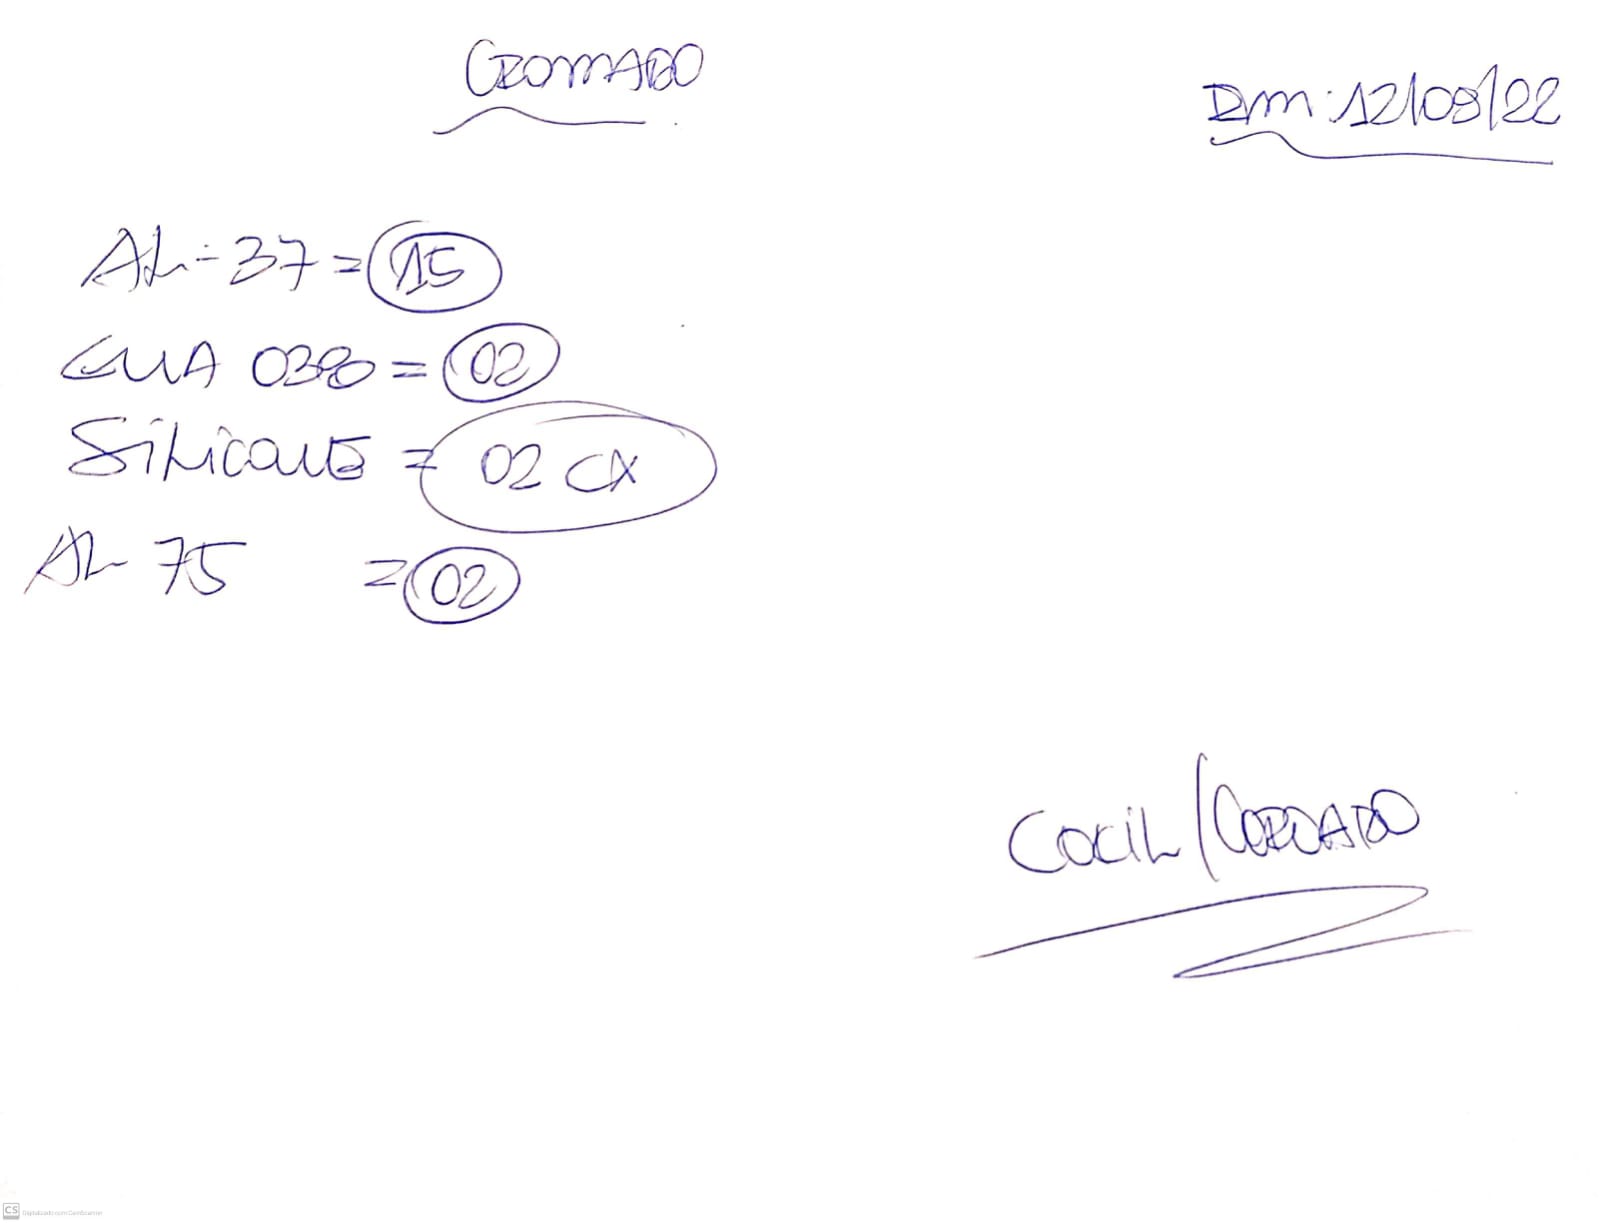 CROMADO
Em: 12/08/22
AL-37 = 15
0380 = 02
SILICONE = 02 CX
AL 75 = 02
COCIL/
Digitalizado com CamScanner